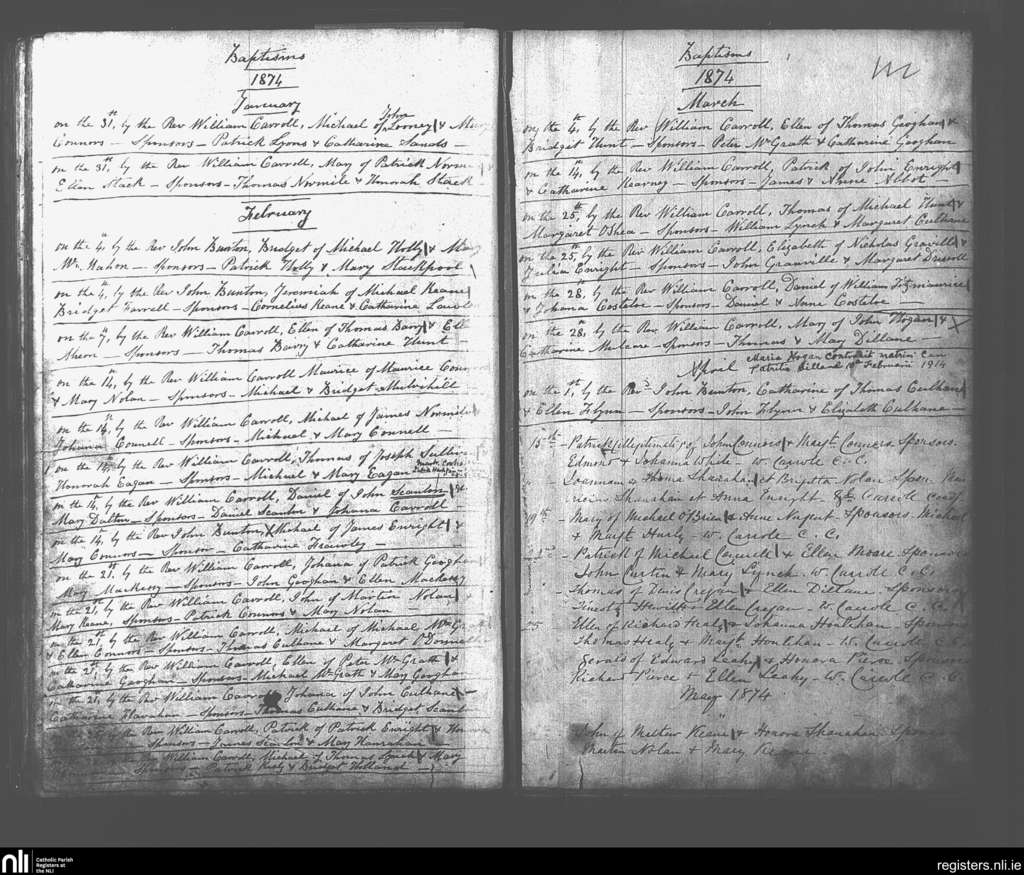 Baptisms
1874
January
on the 31st, by the Rev William Carroll, Michael of John Looney & Mary
Connors — Sponsors — Patrick Lyons & Catharine Sands —
on the 31st, by the Rev William Carroll, Mary of Patrick Norm
Ellen Stack — Sponsors — Thomas Normile & Honorah Stack
February
on the 4, by the Rev John Bunton, Bridget of Michael Holly & Mary
Mc Mahon — Sponsors — Patrick Holly & Mary Stackpool
on the 4, by the Rev John Bunton, Jeremiah of Michael Keane
Bridget Farrell — Sponsors — Cornelius Keane & Catharine
on the 7, by the Rev William Carroll, Ellen of Thomas Barry & Ell
Ahern — Sponsors — Thomas Barry & Catharine Hunt —
on the 14, by the Rev William Carroll Maurice of Maurice Con
& Mary Nolan — Sponsors — Michael & Bridget
on the 14, by the Rev William Carroll, Michael of James Normile
Johana Connell — Sponsors — Michael & Mary Connell —
on the 14, by the Rev William Carroll, Thomas of Joseph Sulliv
Honorah Eagan — Sponsors — Michael & Mary Eagan
on the 14, by the Rev William Carroll, Daniel of John Scanlon &
Mary Dalton — Sponsors — Daniel Scanlon & Johana Carroll
on the 14, by the Rev John Bunton, Michael of James Enright &
Mary Connors — Sponsor — Catharine Frawley —
on the 21st, by the Rev William Carroll, Johana of Patrick Geoghan
Mary Mackessy — Sponsors — John Geoghan & Ellen Mackessy
on the 21, by the Rev William Carroll, John of Martin Nolan
Mary Keane, Sponsors — Patrick Connors & Mary Nolan —
on the 21, by the Rev William Carroll, Michael of Michael Mc
& Ellen Connors — Sponsors — Thomas Culhane & Margaret O'Donnell
on the 21, by the Rev William Carroll, Ellen of Peter Mc Grath &
Catharine Geoghan Sponsors — Michael Mc Grath & Mary Geoghan
on the 21, by the Rev William Carroll, Johana of John Culhane
Catharine Hanahan — Sponsors — Thomas Culhane & Bridget Scanl
the Rev William Carroll, Patrick of Patrick Enright & Honora
— Sponsors — James Scanlon & Mary Hanrahan
William Carroll, Michael of Thomas Lynch & Mary
Sponsors — Patrick & Bridget Holland —
Baptisms
1874
March
on the 4, by the Rev William Carroll, Ellen of Thomas Geoghan &
Bridget Hunt — Sponsors — Peter Mc Grath & Catharine Geoghan
on the 14, by the Rev William Carroll, Patrick of John Enright
& Catharine Kearney — Sponsors — James & Anne Abbot
on the 25, by the Rev William Carroll, Thomas of Michael Hunt &
Margaret O'Shea — Sponsors — William Lynch & Margaret Culhane
on the 25, by the Rev William Carroll, Elizabeth of Nicholas Granville &
Julia Enright — Sponsors — John Granville & Margaret Driscoll
on the 28, by the Rev William Carroll, Daniel of William Fitzmaurice
& Johana Costeloe — Sponsors — Daniel & Anne Costeloe —
on the 28, by the Rev William Carroll, Mary of John Hogan &
Catharine — Sponsors — Thomas & Mary Dillane
Maria Hogan contraxit matrim. cum
April Patritio Dillard Februarii 1914
on the 1st, by the Rev John Bunton, Catharine of Thomas Culhane
& Ellen Flynn — Sponsors — John Flynn & Elizabeth Culhane
15th — Patrick (illegitimate) of John Connors & Margt Connors Sponsors
Edmond & Johanna White — W. Carrole C. C.
Joannam a Thoma Shanahan et Brigitta Nolan Spon.
Shanahan et Anna Enright. Carrole
19th — Mary of Michael O'Brien & Anne Nugent. Sponsors Michael
& Margt Hurly — W. Carrole C. C.
Patrick of Michael Connell & Ellen Moore. Sponsors
John Curtin & Mary Lynch. W. Carrole C. C.
Thomas of Denis Cregan & Ellen Dillane. Sponsors
Hewitt & Ellen Cregan. W. Carrole C. C.
25 Ellen of Richard Healy & Johanna Houlihan — Sponsors
Thomas Healy & Margt Houlihan — W. Carrole C. C.
Gerald of Edward Leahy & Honora Pierse. Sponsors
Richard Pierse & Ellen Leahy — W. Carrole C. C.
May 1874
John of Mathew Keane & Honora Shanahan. Spons
Nolan & Mary
nli
Catholic Parish
Registers at
the NLI
registers.nli.ie